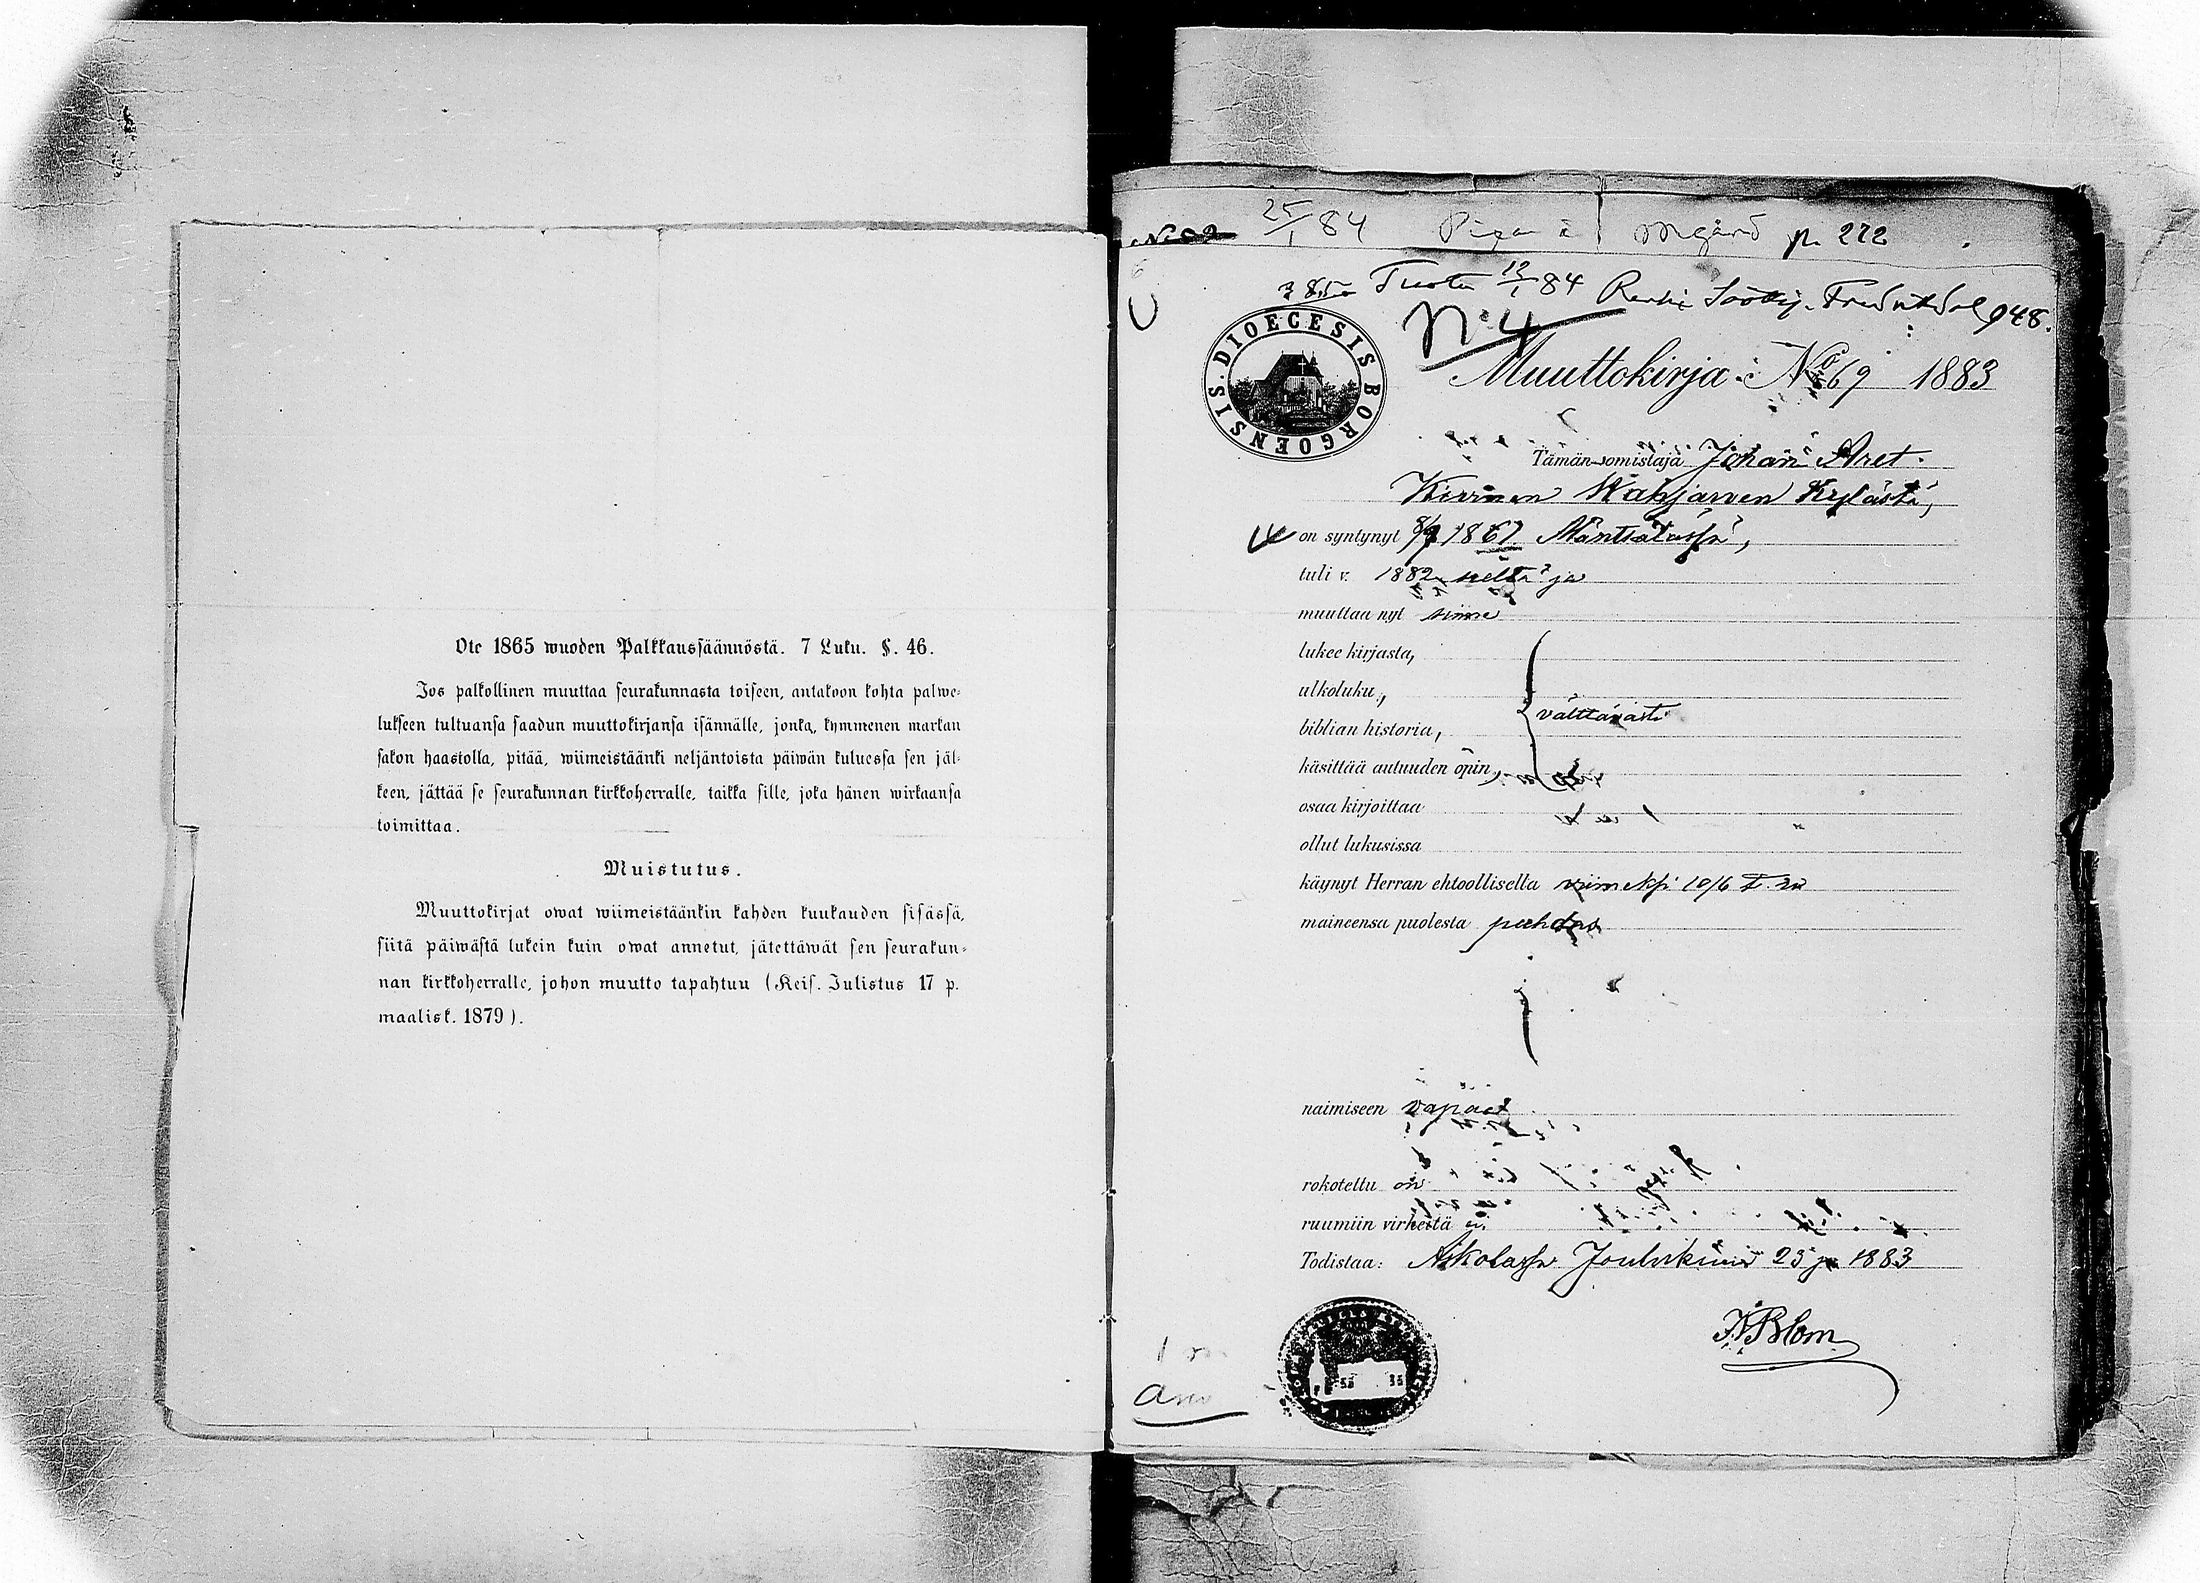 Ote 1865 wuoden Palkkaussäännöstä. 7 Luku. §. 46.
Jos palkollinen muuttaa seurakunnasta toiseen, antakoon kohta palwe-
lukseen tultuansa saadun muuttokirjansa isännälle, jonka, kymmenen markan
sakon haastolla, pitää, wiimeistäänki neljäntoista päiwän kuluessa sen jäl-
keen, jättää se seurakunnan kirkkoherralle, taikka sille, joka hänen wirkaansa
toimittaa.
Muistutus.
Muuttokirjat owat wiimeistäänkin kahden kuukauden sisässä,
siitä päiwästä lukein kuin owat annetut, jätettäwät sen seurakun-
nan kirkkoherralle, johon muutto tapahtuu (Keis. Julistus 17 p.
maalisk. 1879).
25/1 84 p. 272
12/1 84 948.
No 4
DIOECESIS BORGOENSIS.
Muuttokirja No 69 1883
Tämän omistaja Johan
Kylästä,
on syntynyt 1867 Mäntsälässä,
tuli v. 1882 sieltä ja
muuttaa nyt sinne
lukee kirjasta,
ulkoluku,
biblian historia,
välttävästi
käsittää autuuden opin,
osaa kirjoittaa
ollut lukusissa
käynyt Herran ehtoollisella viimeksi 10/6
maineensa puolesta puhdas
naimiseen vapaa
rokotettu on
ruumiin virheitä ei
Todistaa: Askolassa Joulukuun 23 p. 1883
Blom